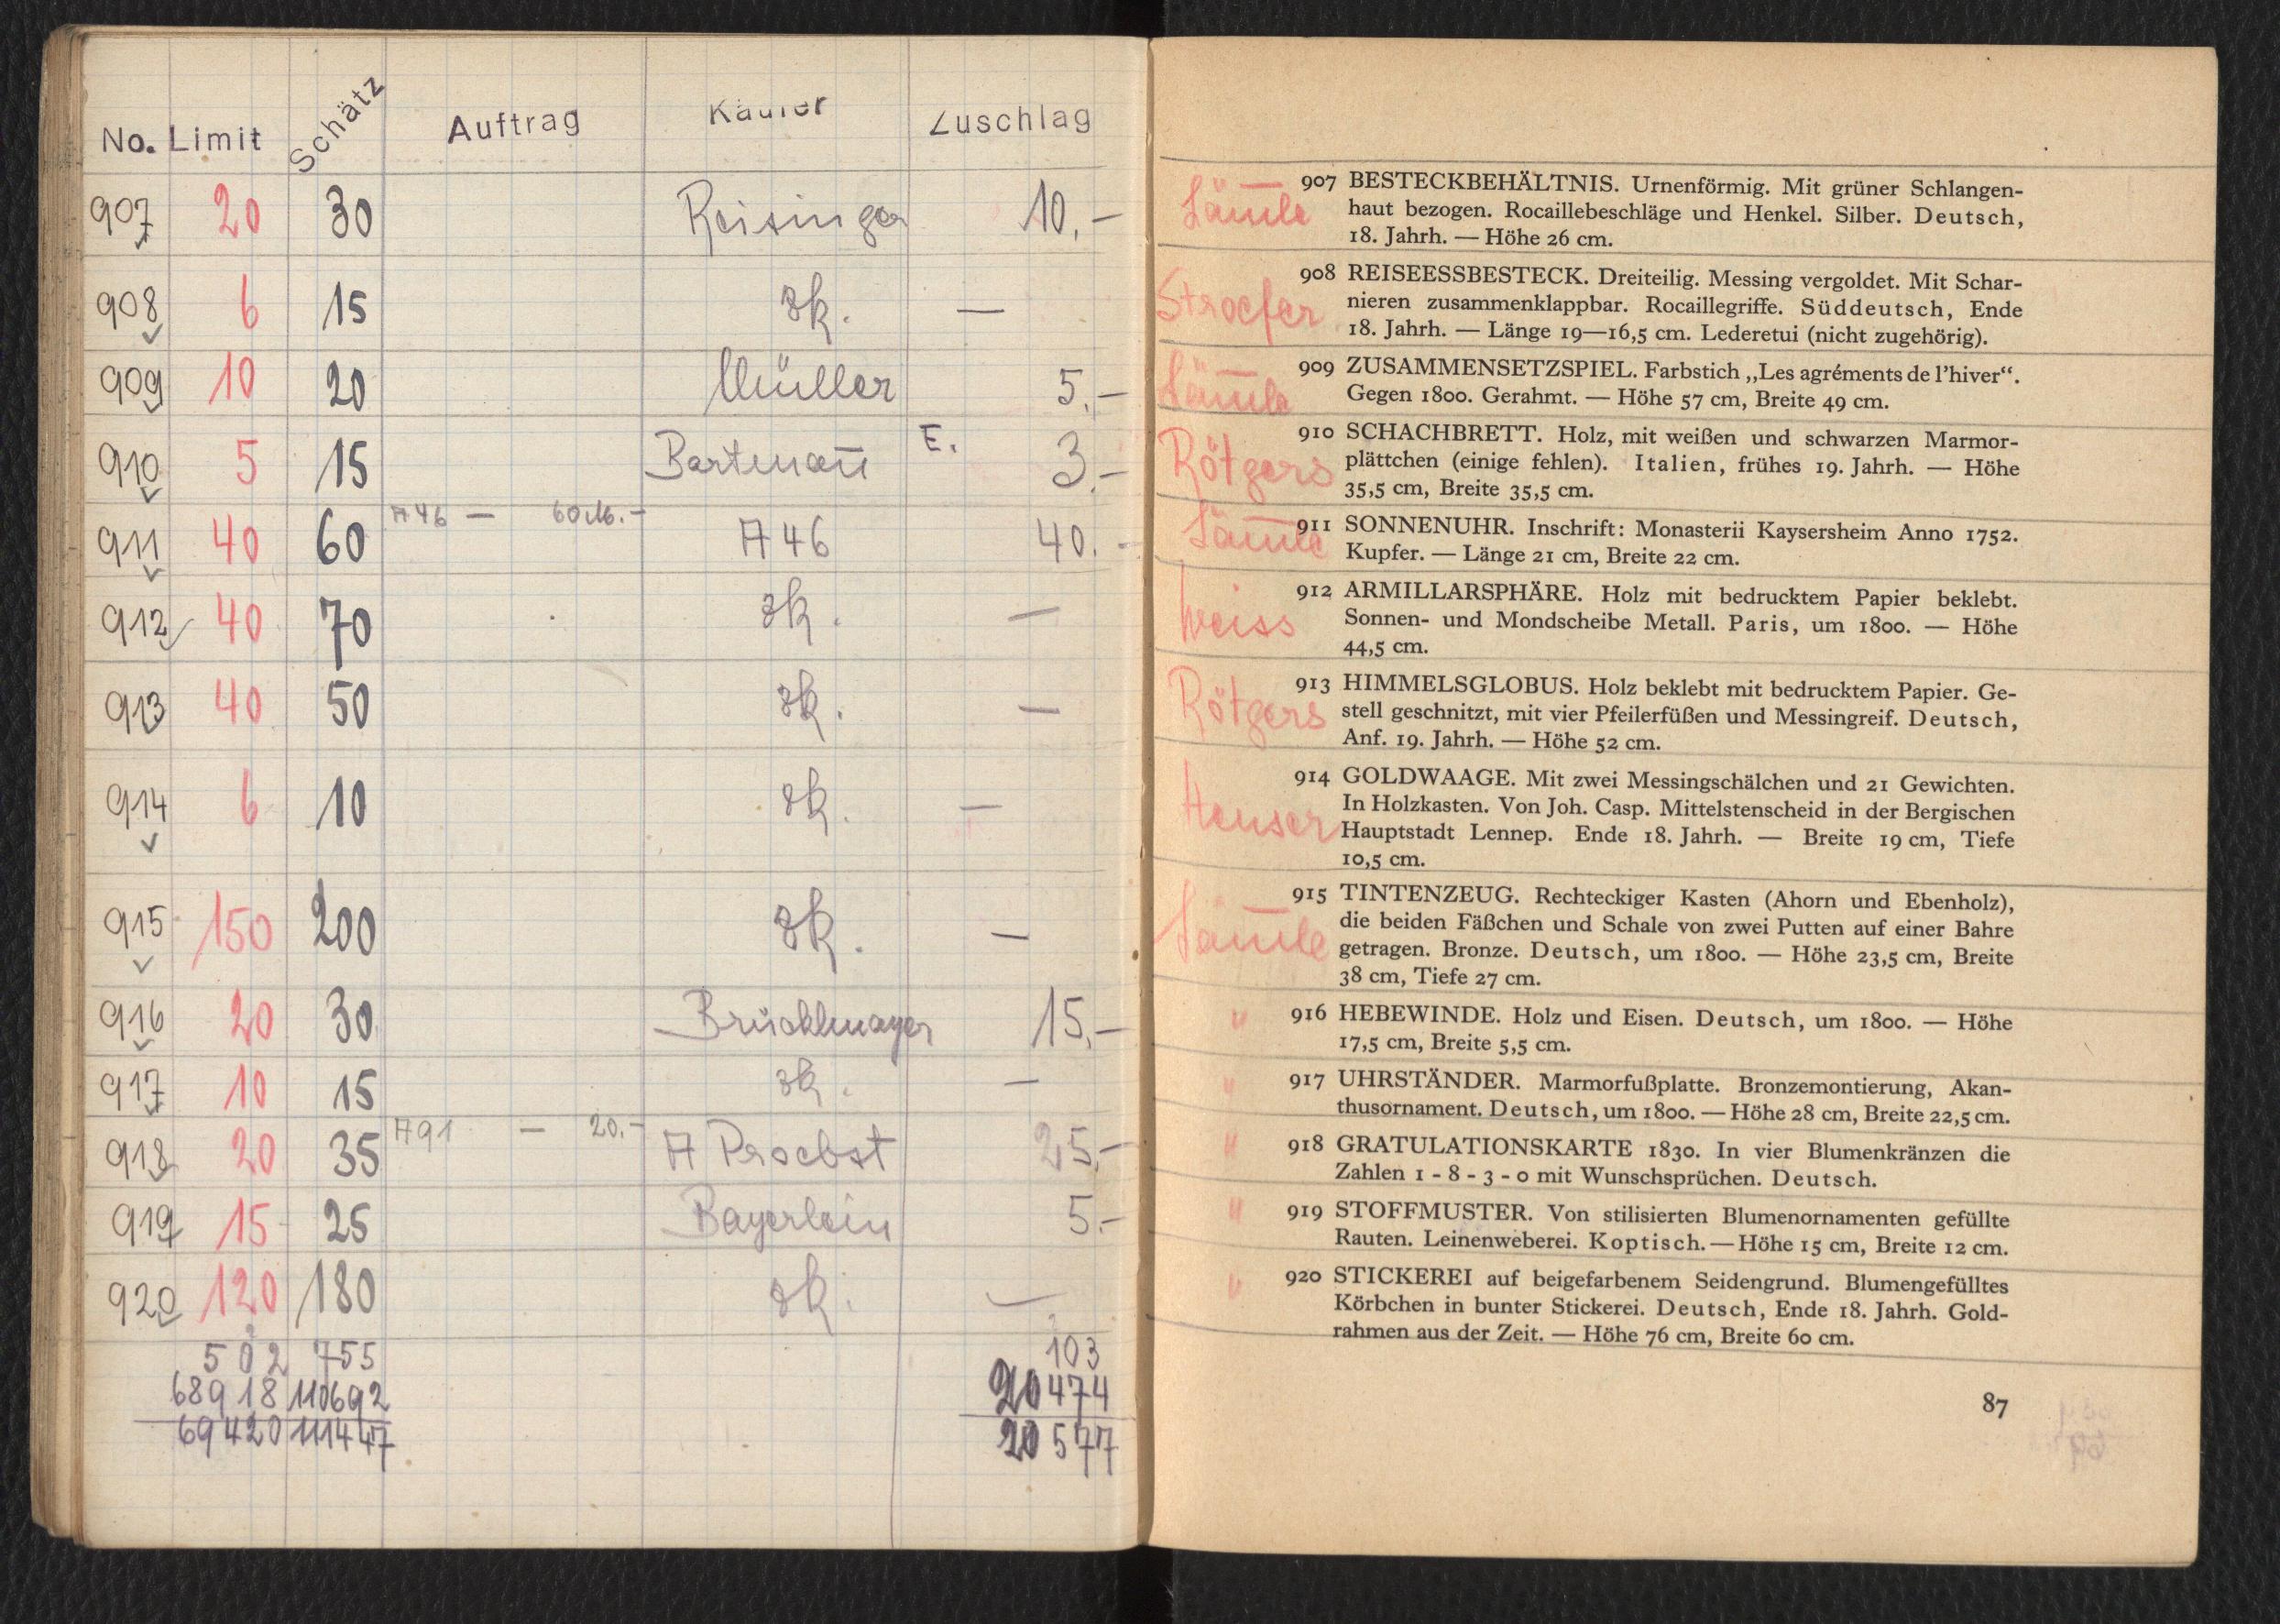 No. Limit Schätz Auftrag Käufer Zuschlag
907 20 30 Reisinger 10.-
908 6 15 zk. —
909 10 20 Müller 5.-
910 5 15 Bartmañ E. 3.-
911 40 60 A 46 — 60 M.- A 46 40.-
912 40 70 zk. —
913 40 50 zk. —
914 6 10 zk. —
915 150 200 zk. —
916 20 30 Brücklmayer 15.-
917 10 15 zk. —
918 20 35 A 91 — 20.- A Proebst 25.-
919 15 25 Bayerlein 5.-
920 120 180 zk. —
502 755 103
68918 110692 20474
69420 111447 20577
Lämle 907 BESTECKBEHÄLTNIS. Urnenförmig. Mit grüner Schlangen-
haut bezogen. Rocaillebeschläge und Henkel. Silber. Deutsch,
18. Jahrh. — Höhe 26 cm.
Stroefer 908 REISEESSBESTECK. Dreiteilig. Messing vergoldet. Mit Schar-
nieren zusammenklappbar. Rocaillegriffe. Süddeutsch, Ende
18. Jahrh. — Länge 19—16,5 cm. Lederetui (nicht zugehörig).
Lämle 909 ZUSAMMENSETZSPIEL. Farbstich „Les agréments de l'hiver“.
Gegen 1800. Gerahmt. — Höhe 57 cm, Breite 49 cm.
Rötgers 910 SCHACHBRETT. Holz, mit weißen und schwarzen Marmor-
plättchen (einige fehlen). Italien, frühes 19. Jahrh. — Höhe
35,5 cm, Breite 35,5 cm.
Lämle 911 SONNENUHR. Inschrift: Monasterii Kaysersheim Anno 1752.
Kupfer. — Länge 21 cm, Breite 22 cm.
Weiss 912 ARMILLARSPHÄRE. Holz mit bedrucktem Papier beklebt.
Sonnen- und Mondscheibe Metall. Paris, um 1800. — Höhe
44,5 cm.
Rötgers 913 HIMMELSGLOBUS. Holz beklebt mit bedrucktem Papier. Ge-
stell geschnitzt, mit vier Pfeilerfüßen und Messingreif. Deutsch,
Anf. 19. Jahrh. — Höhe 52 cm.
Heuser 914 GOLDWAAGE. Mit zwei Messingschälchen und 21 Gewichten.
In Holzkasten. Von Joh. Casp. Mittelstenscheid in der Bergischen
Hauptstadt Lennep. Ende 18. Jahrh. — Breite 19 cm, Tiefe
10,5 cm.
Lämle 915 TINTENZEUG. Rechteckiger Kasten (Ahorn und Ebenholz),
die beiden Fäßchen und Schale von zwei Putten auf einer Bahre
getragen. Bronze. Deutsch, um 1800. — Höhe 23,5 cm, Breite
38 cm, Tiefe 27 cm.
" 916 HEBEWINDE. Holz und Eisen. Deutsch, um 1800. — Höhe
17,5 cm, Breite 5,5 cm.
" 917 UHRSTÄNDER. Marmorfußplatte. Bronzemontierung, Akan-
thusornament. Deutsch, um 1800. — Höhe 28 cm, Breite 22,5 cm.
" 918 GRATULATIONSKARTE 1830. In vier Blumenkränzen die
Zahlen 1 - 8 - 3 - 0 mit Wunschsprüchen. Deutsch.
" 919 STOFFMUSTER. Von stilisierten Blumenornamenten gefüllte
Rauten. Leinenweberei. Koptisch. — Höhe 15 cm, Breite 12 cm.
" 920 STICKEREI auf beigefarbenem Seidengrund. Blumengefülltes
Körbchen in bunter Stickerei. Deutsch, Ende 18. Jahrh. Gold-
rahmen aus der Zeit. — Höhe 76 cm, Breite 60 cm.
87